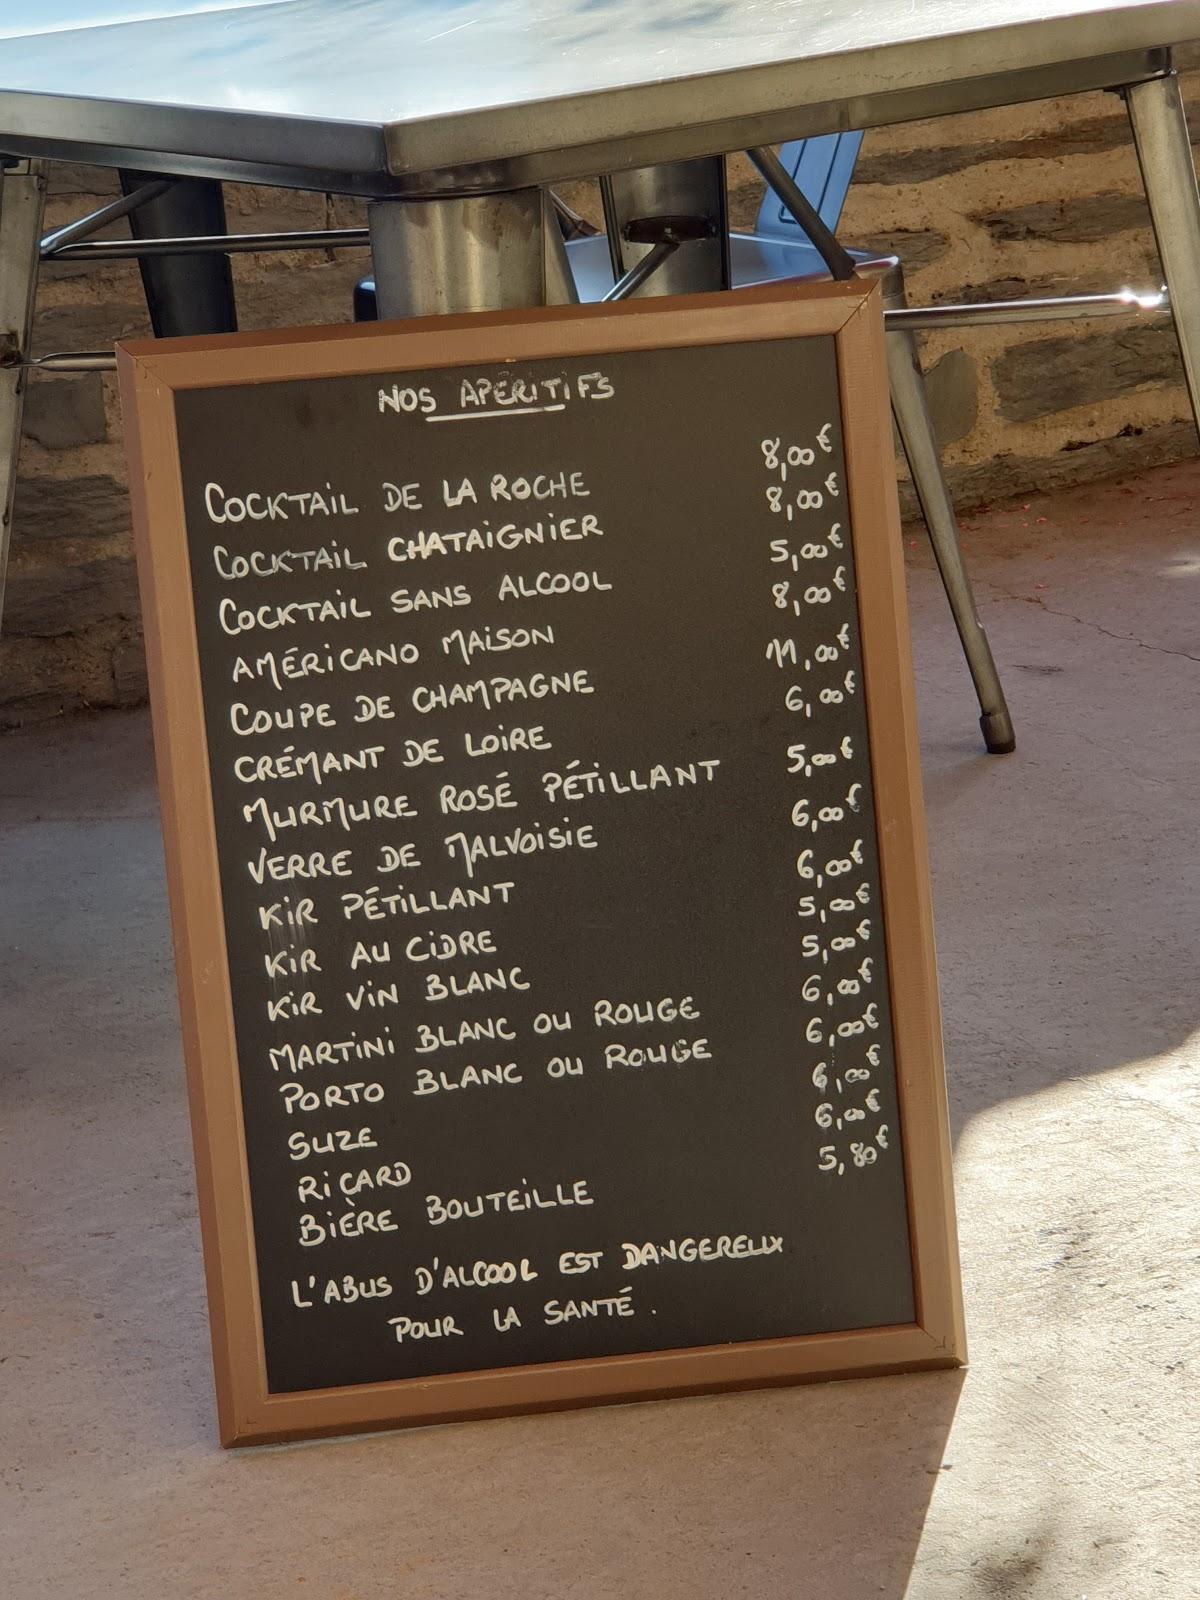 NOS APÉRITIFS
COCKTAIL DE LA ROCHE 8,00€
COCKTAIL CHATAIGNIER 8,00€
COCKTAIL SANS ALCOOL 5,00€
AMÉRICANO MAISON 8,00€
COUPE DE CHAMPAGNE 11,00€
CRÉMANT DE LOIRE 6,00€
MURMURE ROSÉ PÉTILLANT 5,00€
VERRE DE MALVOISIE 6,00€
KIR PÉTILLANT 6,00€
KIR AU CIDRE 5,00€
KIR VIN BLANC 5,00€
MARTINI BLANC OU ROUGE 6,00€
PORTO BLANC OU ROUGE 6,00€
SUZE 6,00€
RICARD 6,00€
BIÈRE BOUTEILLE 5,80€
L'ABUS D'ALCOOL EST DANGEREUX
POUR LA SANTÉ.